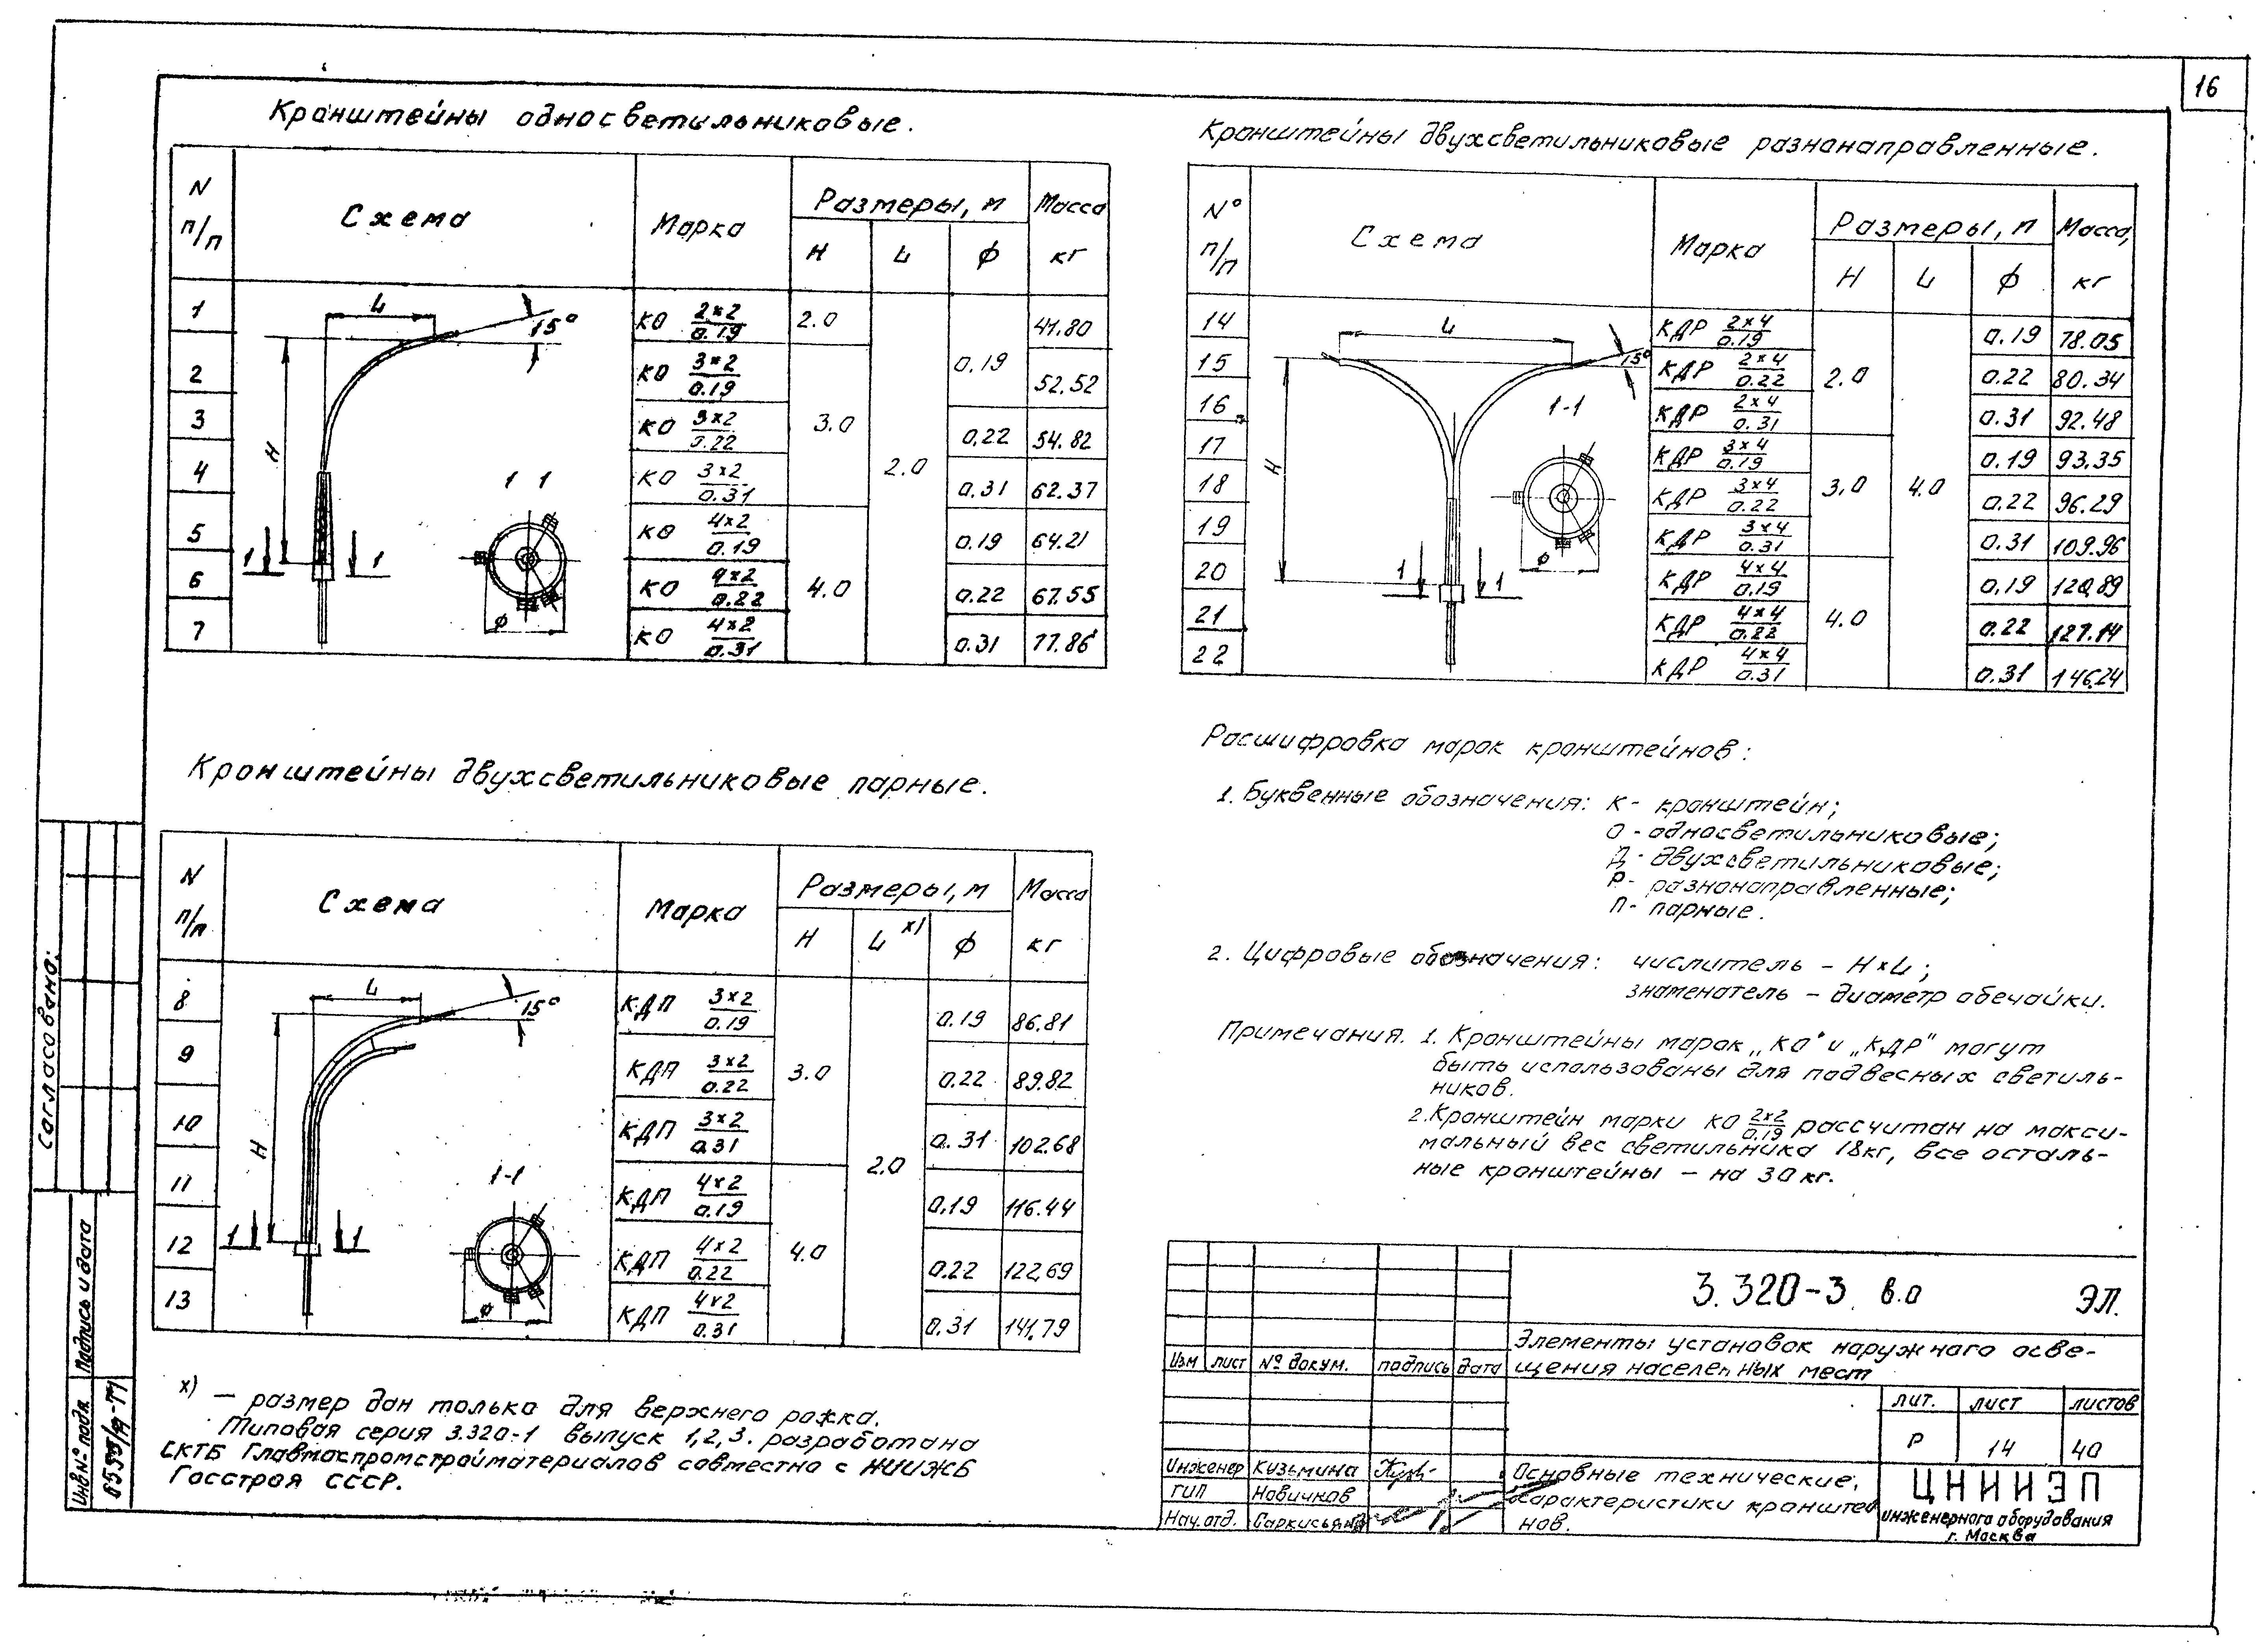 16
Кронштейны односветильниковые.
N п/п Схема Марка Размеры, м Масса кг
H L ϕ
1 КО 2×2/0.19 2.0 41.80
2 КО 3×2/0.19 0.19 52.52
3 КО 3×2/0.22 3.0 0.22 54.82
4 КО 3×2/0.31 2.0 0.31 62.37
5 КО 4×2/0.19 0.19 64.21
6 КО 4×2/0.22 4.0 0.22 67.55
7 КО 4×2/0.31 0.31 77.86
L 15° H 1 1 1 1 ϕ
Кронштейны двухсветильниковые парные.
N п/п Схема Марка Размеры, м Масса кг
H L х) ϕ
8 КДП 3×2/0.19 0.19 86.81
9 КДП 3×2/0.22 3.0 0.22 89.82
10 КДП 3×2/0.31 0.31 102.68
11 КДП 4×2/0.19 2.0 0.19 116.44
12 КДП 4×2/0.22 4.0 0.22 122.69
13 КДП 4×2/0.31 0.31 141.79
L 15° H 1-1 1 1 ϕ
х) — размер дан только для верхнего рожка.
Типовая серия 3.320-1 выпуск 1,2,3. разработана
СКТБ Главмоспромстройматериалов совместно с НИИЖБ
Госстроя СССР.
Кронштейны двухсветильниковые разнонаправленные.
N° п/п Схема Марка Размеры, м Масса, кг
H L ϕ
14 КДР 2×4/0.19 0.19 78.05
15 КДР 2×4/0.22 2.0 0.22 80.34
16 КДР 2×4/0.31 0.31 92.48
17 КДР 3×4/0.19 0.19 93.35
18 КДР 3×4/0.22 3.0 4.0 0.22 96.29
19 КДР 3×4/0.31 0.31 109.96
20 КДР 4×4/0.19 0.19 120.89
21 КДР 4×4/0.22 4.0 0.22 127.14
22 КДР 4×4/0.31 0.31 146.24
L 15° H 1-1 1 1 ϕ
Расшифровка марок кронштейнов:
1. Буквенные обозначения: К - кронштейн;
О - односветильниковые;
Д - двухсветильниковые;
Р - разнонаправленные;
П - парные.
2. Цифровые обозначения: числитель – H×L;
знаменатель – диаметр обечайки.
Примечания. 1. Кронштейны марок „КО" и „КДР" могут
быть использованы для подвесных светиль-
ников.
2. Кронштейн марки КО 2×2/0.19 рассчитан на макси-
мальный вес светильника 18кг, все осталь-
ные кронштейны – на 30 кг.
3.320-3 в.0 ЭЛ.
Элементы установок наружного осве-
щения населенных мест
Изм лист № докум. подпись дата
лит. лист листов
Р 14 40
Инженер Кузьмина
ГИП Новичков
Нач.отд. Саркисьян
Основные технические
характеристики кронштей
нов.
ЦНИИЭП
инженерного оборудования
г. Москва
Согласовано:
Подпись и дата
Инв № подл.